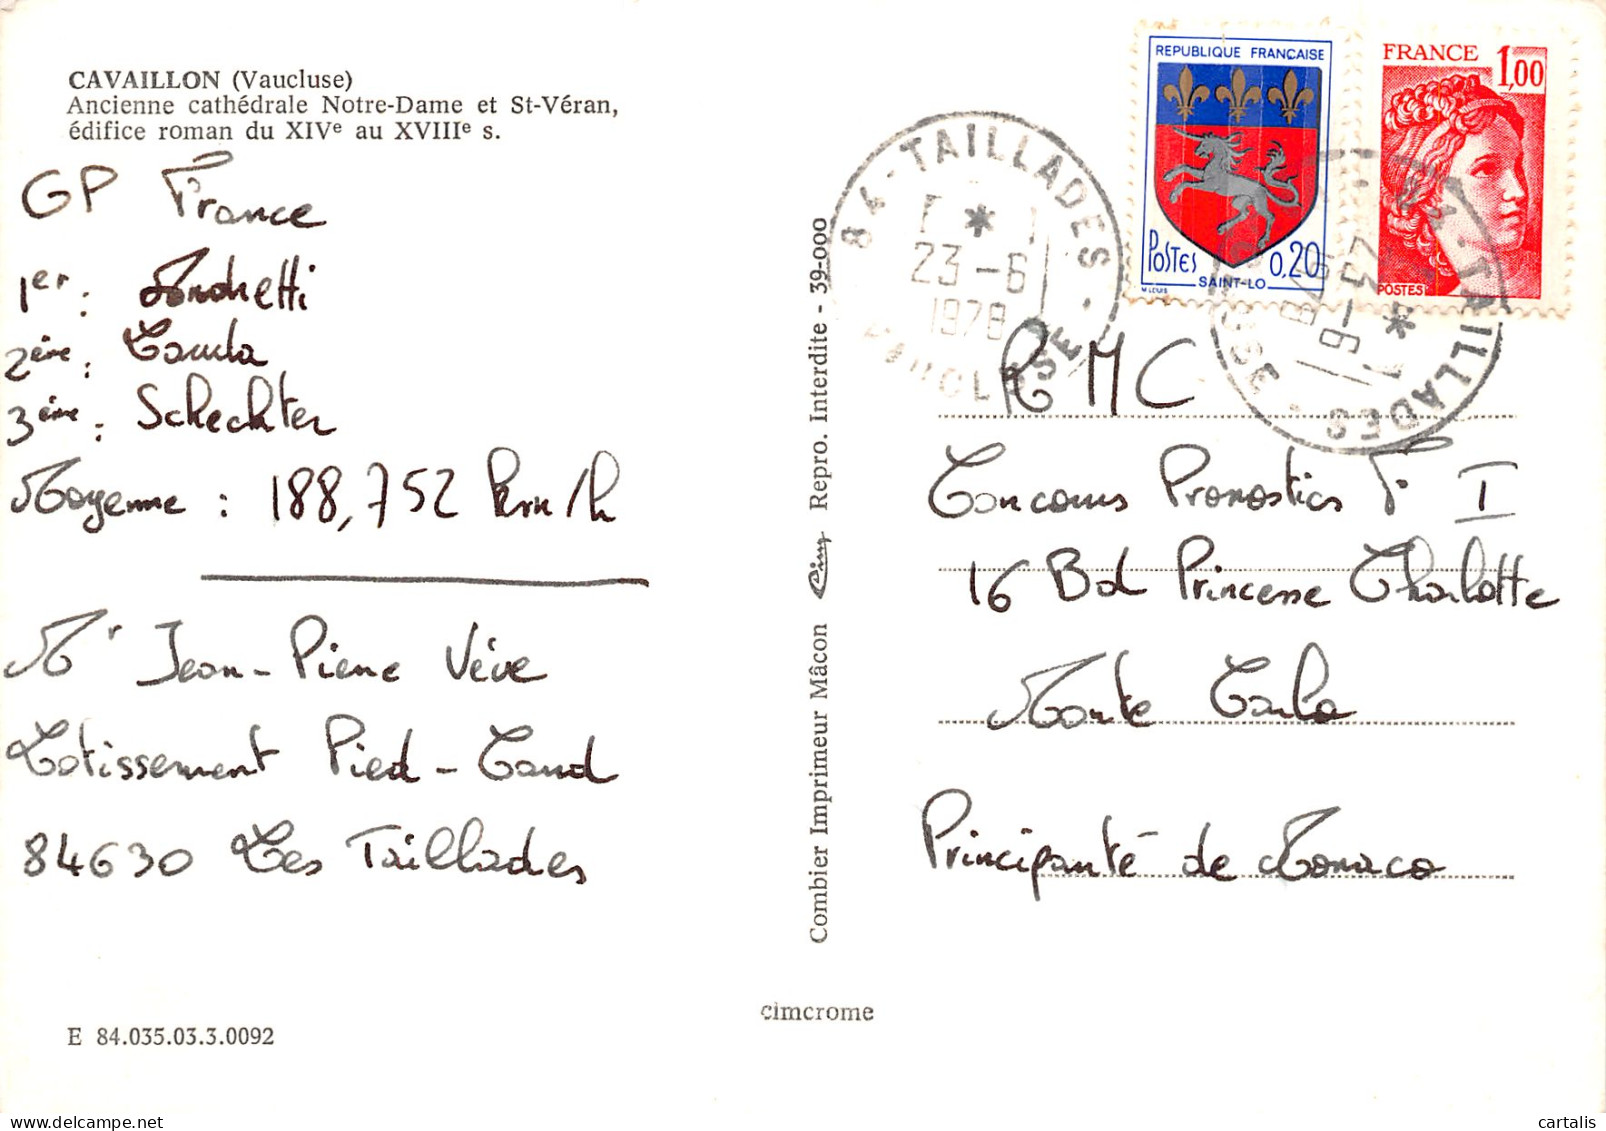 CAVAILLON (Vaucluse)
Ancienne cathédrale Notre-Dame et St-Véran,
édifice roman du XIVe au XVIIIe s.
GP France
1er : Andretti
2ème : Lauda
3ème : Scheckter
Moyenne : 188,752 km/h
Mr Jean-Pierre Vève
Lotissement Pied-Caud
84630 Les Taillades
E 84.035.03.3.0092
Combier Imprimeur Mâcon Cim Repro. Interdite - 39-000
cimcrome
84-TAILLADES
23-6
1978
VAUCLUSE
REPUBLIQUE FRANÇAISE
POSTES 0,20
SAINT-LO
FRANCE 1,00
POSTES
84-TAILLADES
23-6
1978
VAUCLUSE
RMC
Concours Pronostics F I
16 Bd Princesse Charlotte
Monte Carlo
Principauté de Monaco
cartalis
delcampe.net